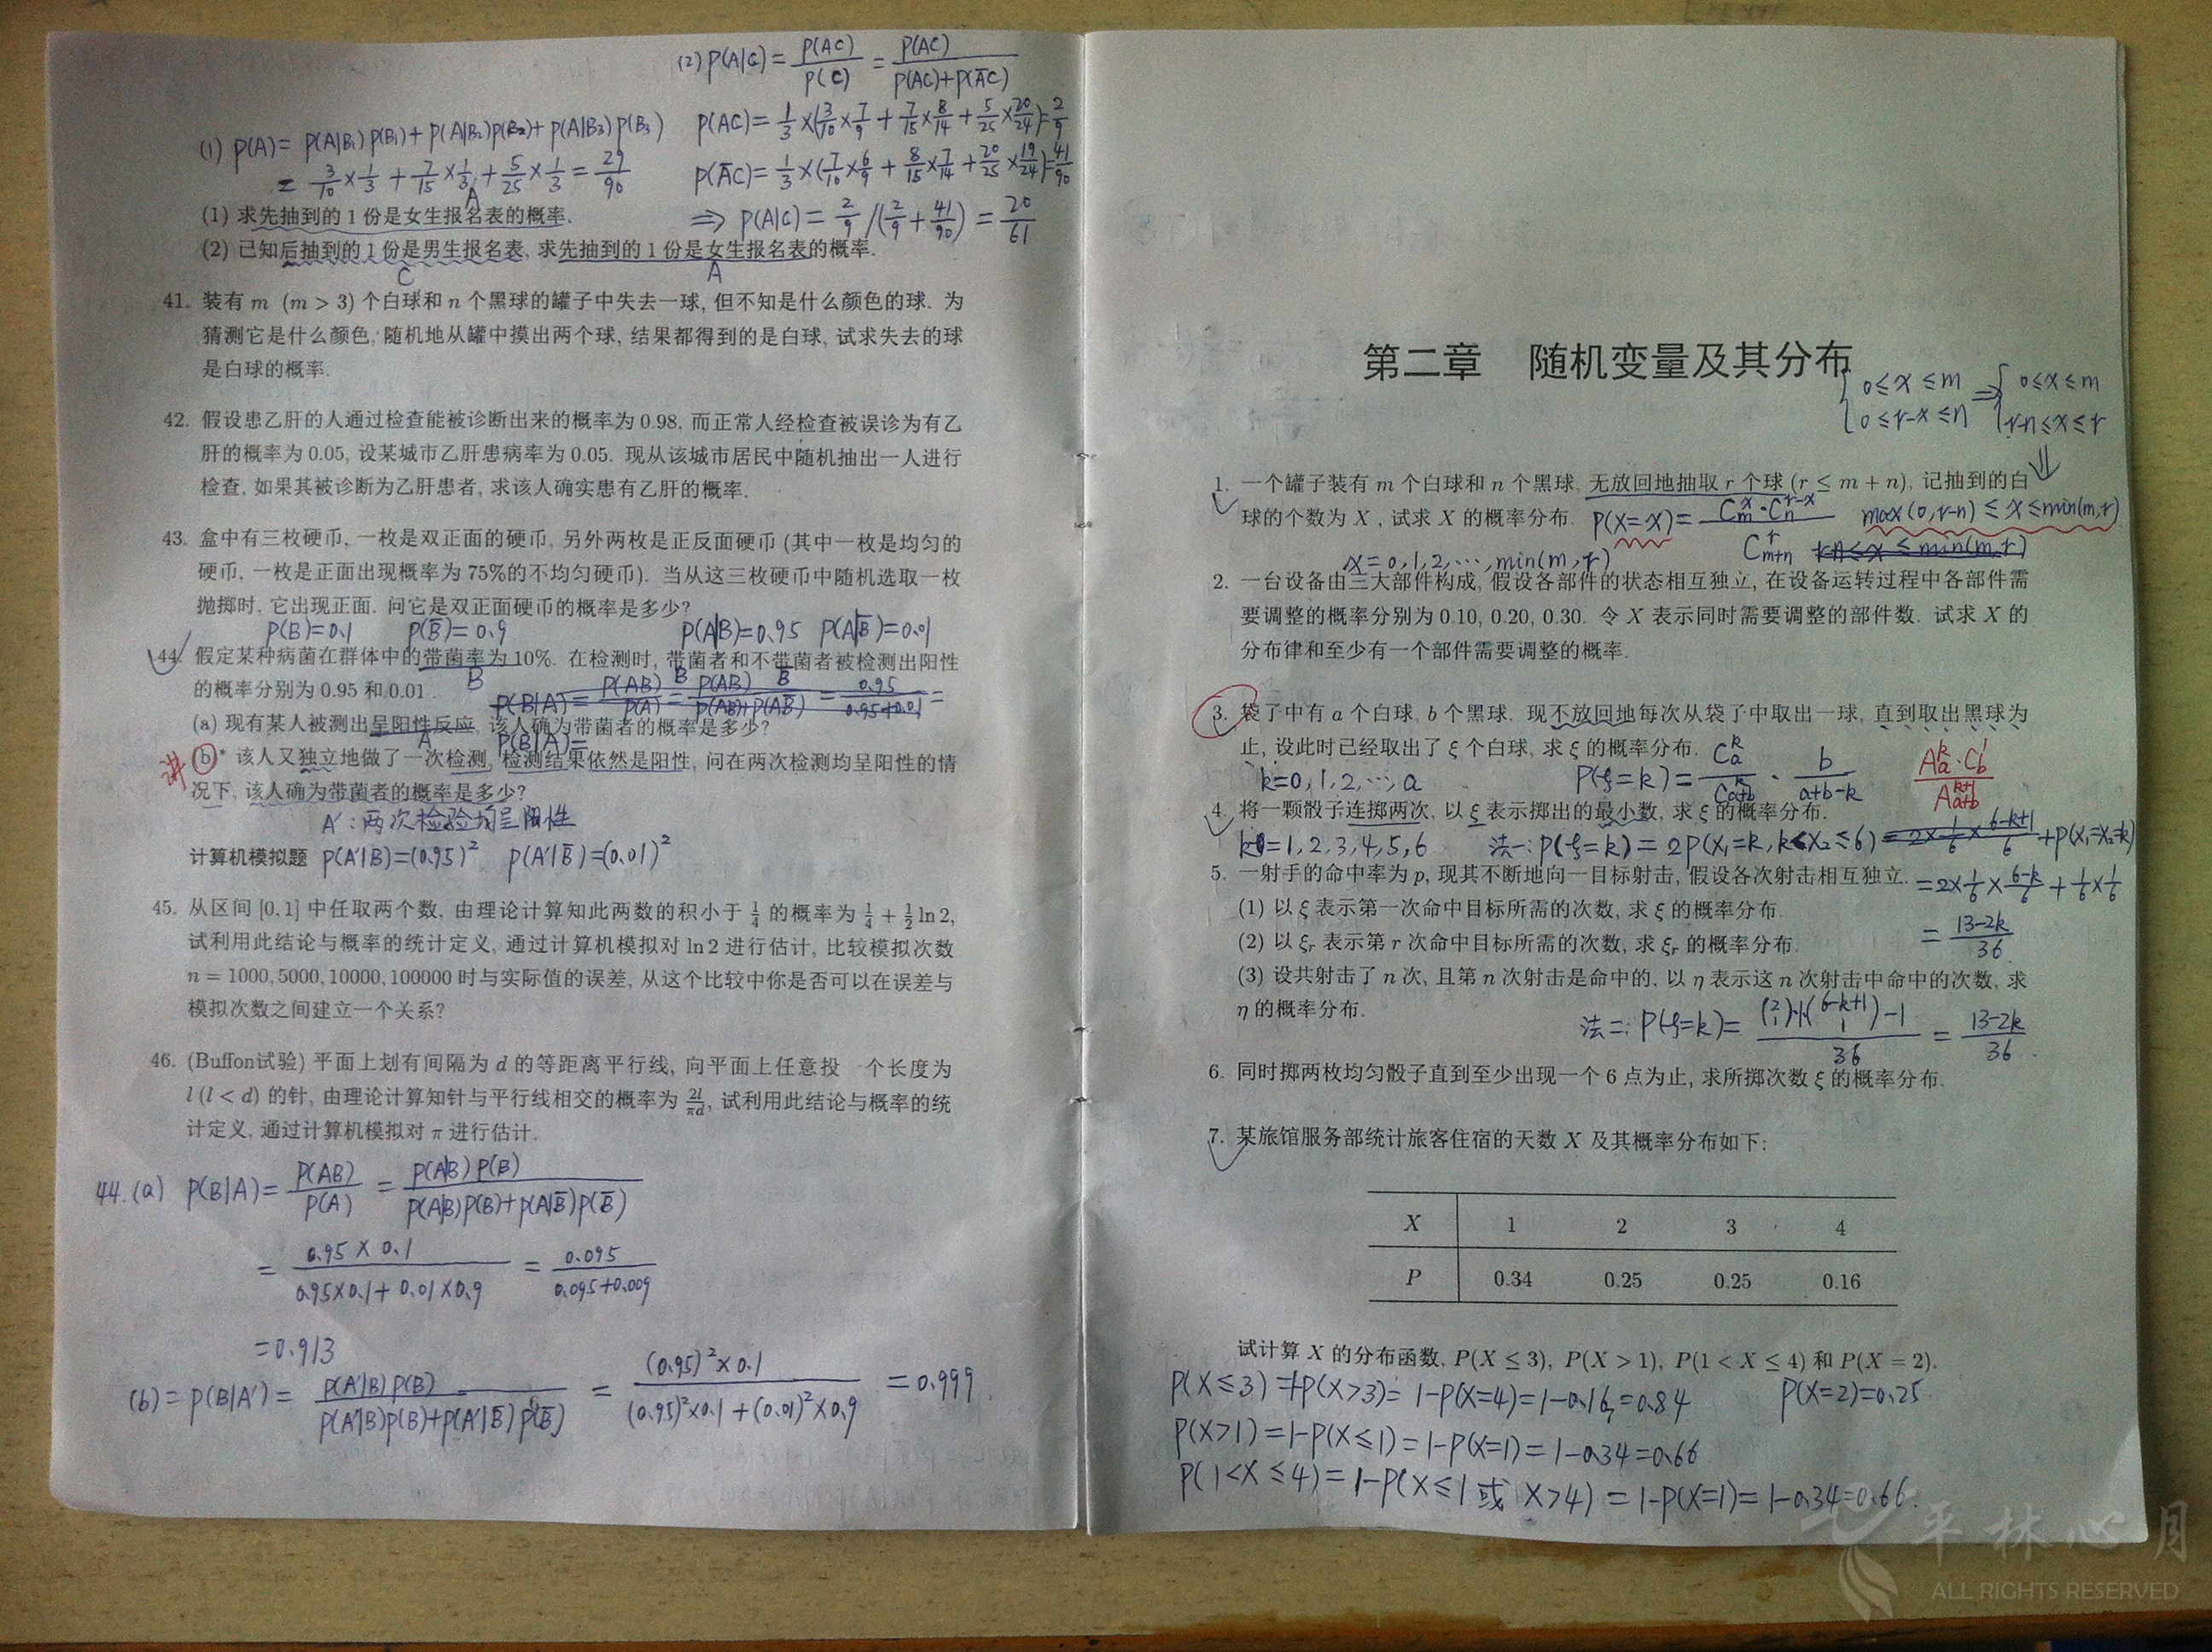 (2) P(A|C) = P(AC)/P(C) = P(AC)/(P(AC)+P(ĀC))
(1) P(A) = P(A|B₁)P(B₁) + P(A|B₂)P(B₂) + P(A|B₃)P(B₃)
= 3/10 × 1/3 + 7/15 × 1/3 + 5/25 × 1/3 = 29/90
P(AC) = 1/3 × (3/10 × 7/9 + 7/15 × 8/14 + 5/25 × 20/24) = 2/9
P(ĀC) = 1/3 × (7/10 × 6/9 + 8/15 × 7/14 + 20/25 × 19/24) = 41/90
⇒ P(A|C) = 2/9 / (2/9 + 41/90) = 20/61
A
(1) 求先抽到的 1 份是女生报名表的概率.
(2) 已知后抽到的 1 份是男生报名表, 求先抽到的 1 份是女生报名表的概率.
C A
41. 装有 m (m > 3) 个白球和 n 个黑球的罐子中失去一球, 但不知是什么颜色的球. 为
猜测它是什么颜色, 随机地从罐中摸出两个球, 结果都得到的是白球, 试求失去的球
是白球的概率.
42. 假设患乙肝的人通过检查能被诊断出来的概率为 0.98, 而正常人经检查被误诊为有乙
肝的概率为 0.05, 设某城市乙肝患病率为 0.05. 现从该城市居民中随机抽出一人进行
检查, 如果其被诊断为乙肝患者, 求该人确实患有乙肝的概率.
43. 盒中有三枚硬币, 一枚是双正面的硬币, 另外两枚是正反面硬币 (其中一枚是均匀的
硬币, 一枚是正面出现概率为 75%的不均匀硬币). 当从这三枚硬币中随机选取一枚
抛掷时, 它出现正面. 问它是双正面硬币的概率是多少?
P(B)=0.1 P(B̄)=0.9 P(A|B)=0.95 P(A|B̄)=0.01
44. 假定某种病菌在群体中的带菌率为 10%. 在检测时, 带菌者和不带菌者被检测出阳性
B B B̄
的概率分别为 0.95 和 0.01.
P(B|A) = P(AB)/P(A) = P(AB)/(P(AB)+P(AB̄)) = 0.95/(0.95+0.01) =
(a) 现有某人被测出呈阳性反应, 该人确为带菌者的概率是多少?
A P(B|A)=
讲 (b)* 该人又独立地做了一次检测, 检测结果依然是阳性, 问在两次检测均呈阳性的情
况下, 该人确为带菌者的概率是多少?
A′: 两次检验均呈阳性
计算机模拟题 P(A′|B)=(0.95)² P(A′|B̄)=(0.01)²
45. 从区间 [0, 1] 中任取两个数, 由理论计算知此两数的积小于 1/4 的概率为 1/4 + 1/2 ln 2,
试利用此结论与概率的统计定义, 通过计算机模拟对 ln 2 进行估计, 比较模拟次数
n = 1000, 5000, 10000, 100000 时与实际值的误差, 从这个比较中你是否可以在误差与
模拟次数之间建立一个关系?
46. (Buffon试验) 平面上划有间隔为 d 的等距离平行线, 向平面上任意投 个长度为
l (l < d) 的针, 由理论计算知针与平行线相交的概率为 2l/πd, 试利用此结论与概率的统
计定义, 通过计算机模拟对 π 进行估计.
44. (a) P(B|A) = P(AB)/P(A) = P(A|B)P(B)/(P(A|B)P(B)+P(A|B̄)P(B̄))
= 0.95×0.1/(0.95×0.1+0.01×0.9) = 0.095/(0.095+0.009)
= 0.913
(b) = P(B|A′) = P(A′|B)P(B)/(P(A′|B)P(B)+P(A′|B̄)P(B̄)) = (0.95)²×0.1/((0.95)²×0.1+(0.01)²×0.9) = 0.999.
第二章 随机变量及其分布
{0≤x≤m ⇒ {0≤x≤m
0≤r-x≤n r-n≤x≤r
⇓
1. 一个罐子装有 m 个白球和 n 个黑球, 无放回地抽取 r 个球 (r ≤ m + n), 记抽到的白
球的个数为 X , 试求 X 的概率分布. P(X=x) = C_m^x·C_n^{r-x}/C_{m+n}^r max(0,r-n) ≤ x ≤ min(m,r)
x=0,1,2,…,min(m,r) r-n≤x≤min(m,r)
2. 一台设备由三大部件构成, 假设各部件的状态相互独立, 在设备运转过程中各部件需
要调整的概率分别为 0.10, 0.20, 0.30. 令 X 表示同时需要调整的部件数. 试求 X 的
分布律和至少有一个部件需要调整的概率.
3. 袋子中有 a 个白球, b 个黑球. 现不放回地每次从袋子中取出一球, 直到取出黑球为
止, 设此时已经取出了 ξ 个白球, 求 ξ 的概率分布.
k=0,1,2,…,a P(ξ=k) = C_a^k/C_{a+b}^k · b/(a+b-k) A_a^k·C_b^1/A_{a+b}^{k+1}
4. 将一颗骰子连掷两次, 以 ξ 表示掷出的最小数, 求 ξ 的概率分布.
k=1,2,3,4,5,6 法一: P(ξ=k) = 2P(X₁=k, k<X₂≤6) = 2×1/6×(6-k+1)/6 + P(X₁=X₂=k)
5. 一射手的命中率为 p, 现其不断地向一目标射击, 假设各次射击相互独立.
= 2×1/6×(6-k)/6 + 1/6×1/6
(1) 以 ξ 表示第一次命中目标所需的次数, 求 ξ 的概率分布.
(2) 以 ξᵣ 表示第 r 次命中目标所需的次数, 求 ξᵣ 的概率分布.
= (13-2k)/36.
(3) 设共射击了 n 次, 且第 n 次射击是命中的, 以 η 表示这 n 次射击中命中的次数, 求
η 的概率分布.
法二: P(ξ=k) = ((2 1)·1·(6-k+1 1)-1)/36 = (13-2k)/36.
6. 同时掷两枚均匀骰子直到至少出现一个 6 点为止, 求所掷次数 ξ 的概率分布.
7. 某旅馆服务部统计旅客住宿的天数 X 及其概率分布如下:
X 1 2 3 4
P 0.34 0.25 0.25 0.16
试计算 X 的分布函数, P(X ≤ 3), P(X > 1), P(1 < X ≤ 4) 和 P(X = 2).
P(X≤3) = 1-P(X>3) = 1-P(X=4) = 1-0.16 = 0.84 P(X=2)=0.25
P(X>1) = 1-P(X≤1) = 1-P(X=1) = 1-0.34 = 0.66
P(1<X≤4) = 1-P(X≤1 或 X>4) = 1-P(X=1) = 1-0.34=0.66.
平林心月
ALL RIGHTS RESERVED